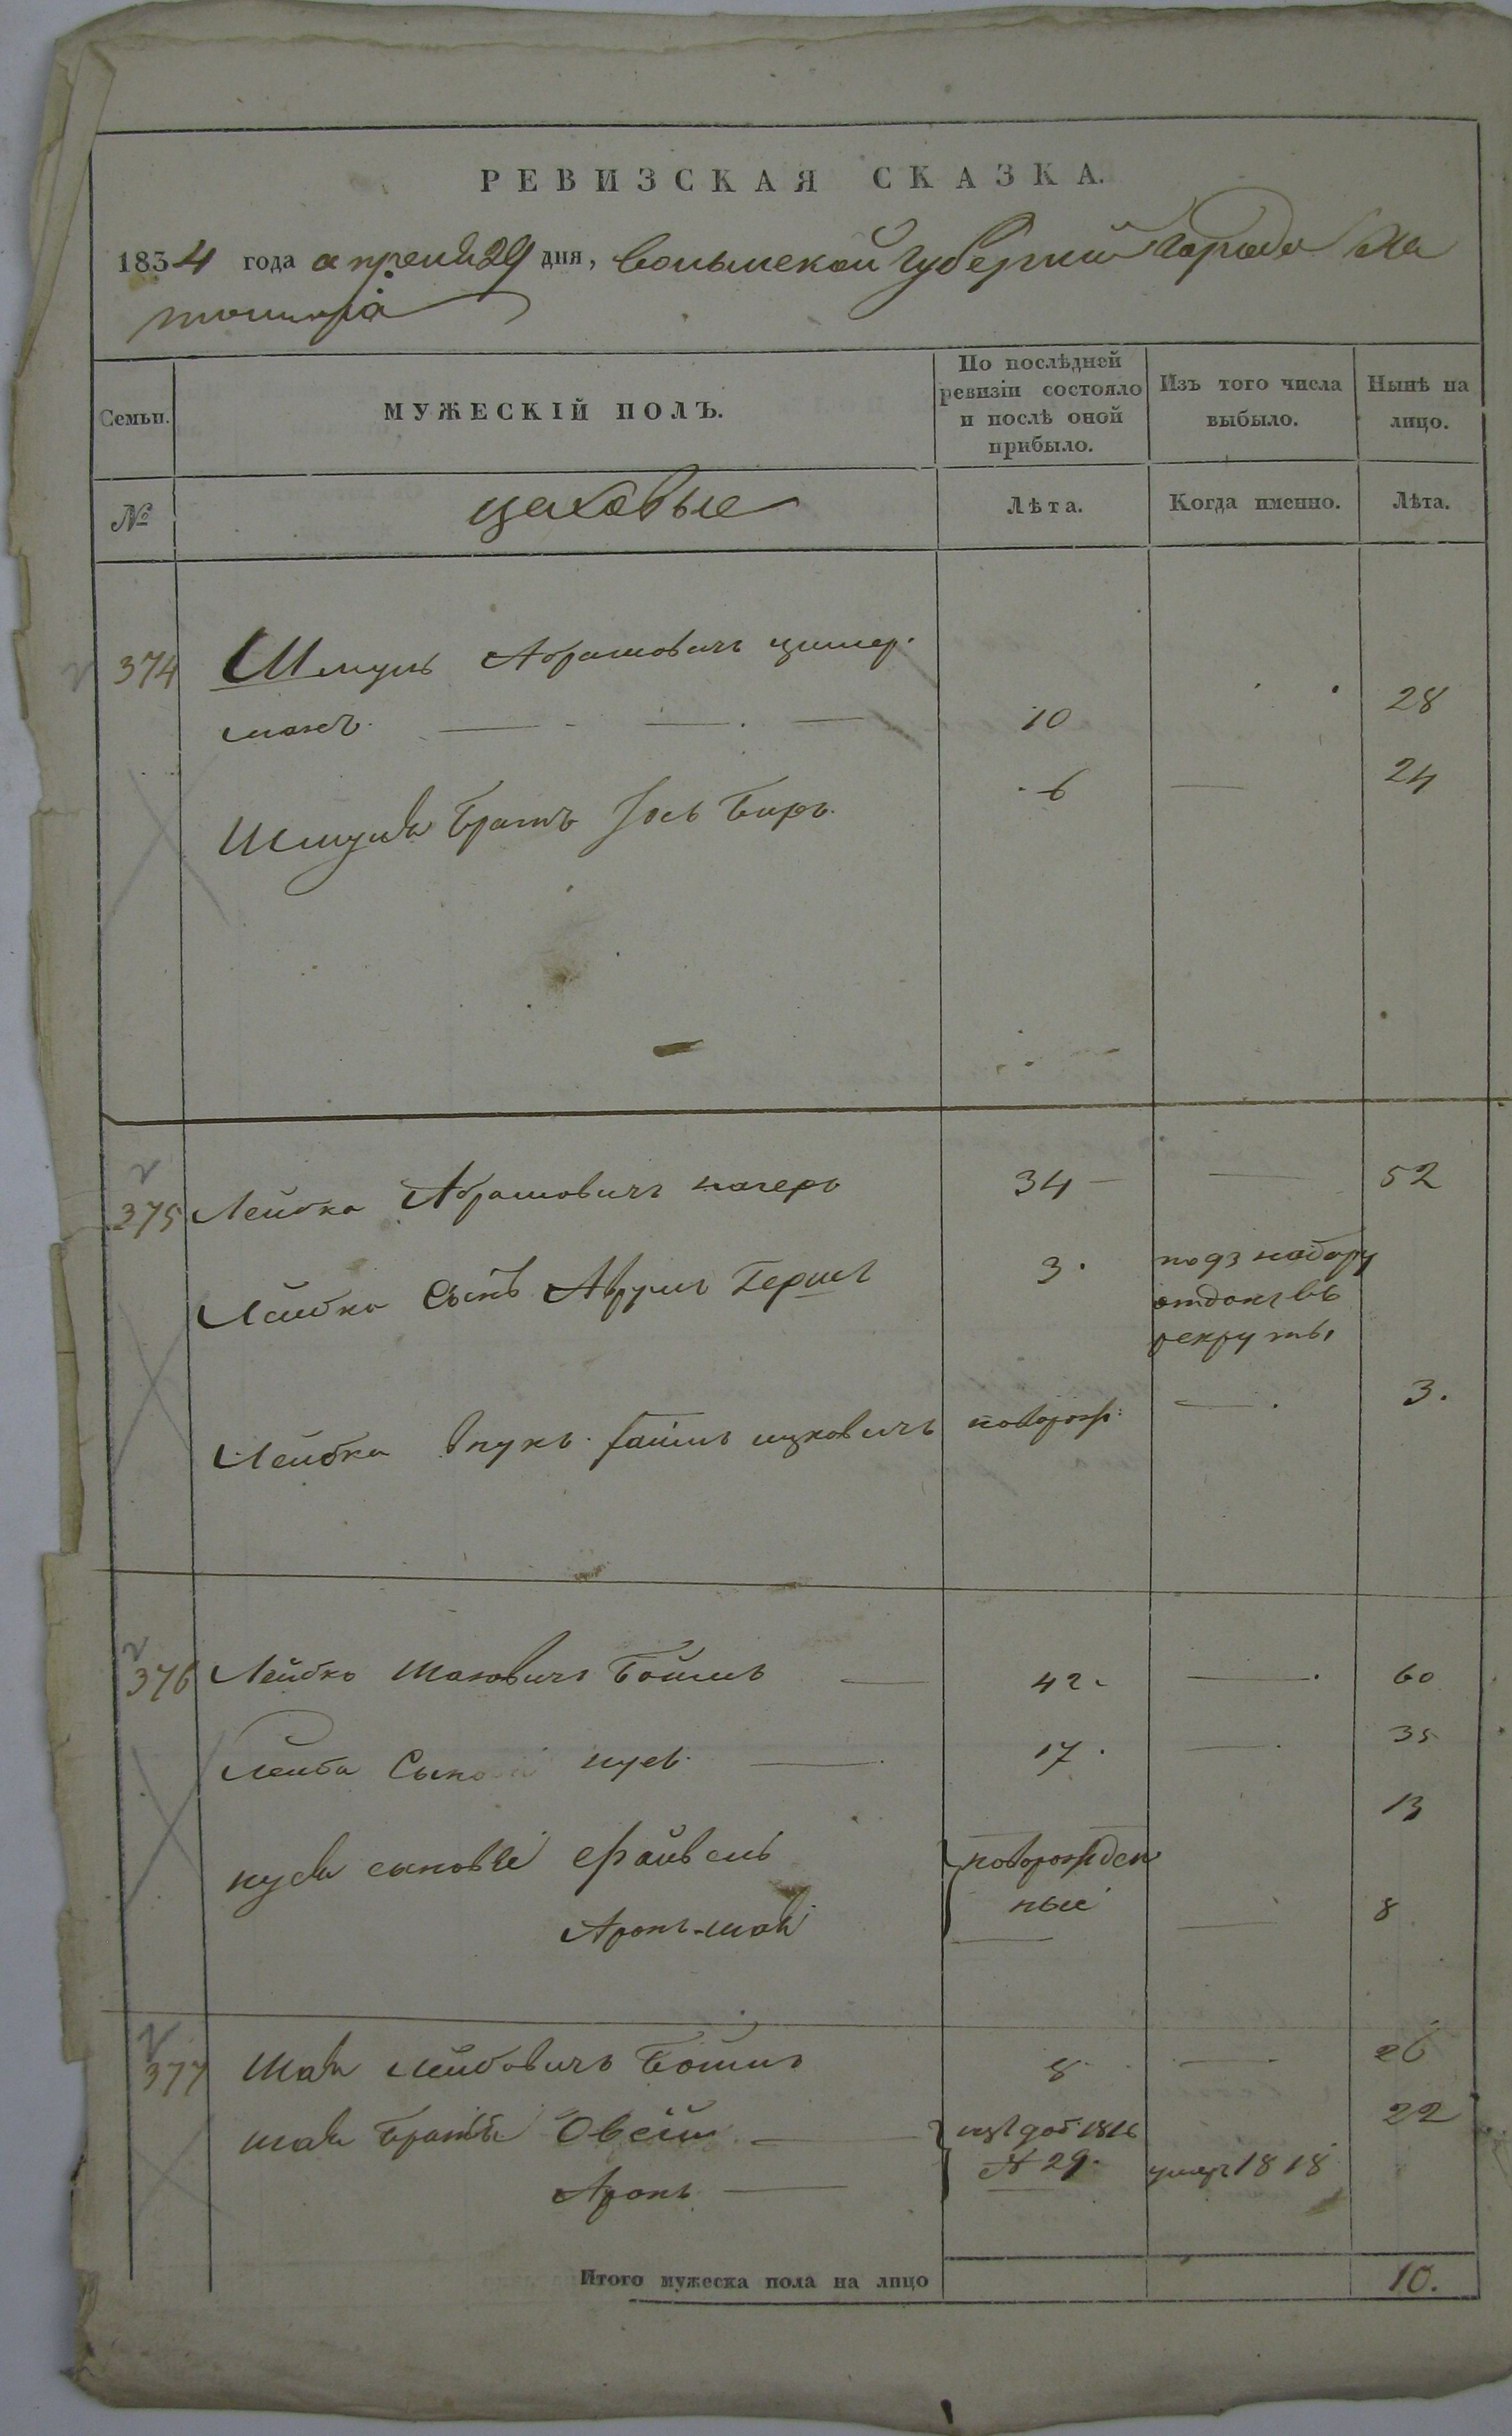 РЕВИЗСКАЯ СКАЗКА.
1834 года апреля 29 дня, Волынской Губернии Города Жи
томира
Семьи.
МУЖЕСКІЙ ПОЛЪ.
По послѣдней ревизіи состояло и послѣ оной прибыло.
Изъ того числа выбыло.
Нынѣ на лицо.
№
цеховые
Лѣта.
Когда именно.
Лѣта.
374 Шмуль Абрамовичъ цимер-
манъ 10 28
Шмуля братъ Іось Беръ 6 24
375 Лейбка Абрамовичъ 34 52
Лейбка Сынъ Аврумъ Гершъ 3 по 93 набору
отданъ въ
рекруты
Лейбка внукъ Хаимъ ицковичъ новорож: 3.
376 Лейбко Шаевичъ 42 60
Лейба Сынъ 17 35
сыновья Файвель новорожден 13
Аронъ-шая ные 8
377 Шая Лейбовичъ 8 26
шаи братья Овсей из доб. 1816 22
Аронъ № 29. умеръ 1818
Итого мужеска пола на лицо 10.